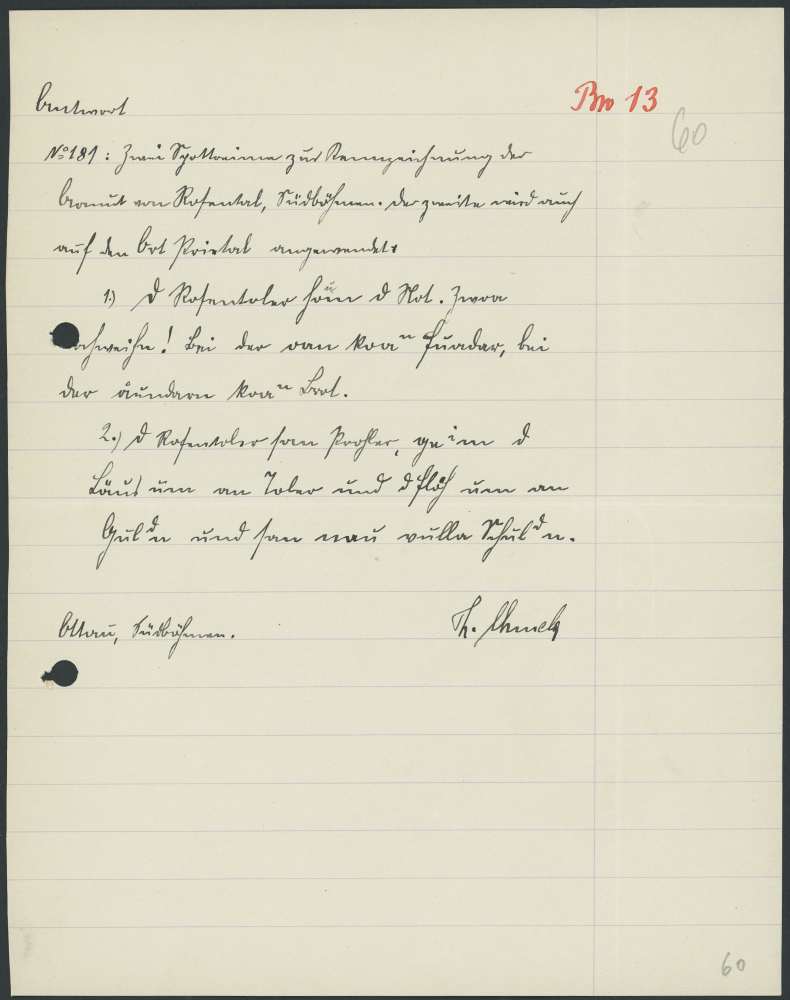 Antwort
Bm 13
60
No 181: Zwei Spottreime zur Kennzeichnung der
Armut von Rosental, Südböhmen. Der zweite wird auch
auf den Ort Prietal angewendet:
1.) D Rosentoler hoům d Not. Zwoa
ochweihn! Bei der oan koan Fuadar, bei
der åundarn koan Brot.
2.) D Rosentoler san Prohler, gein d
Läus um an Toler und d Flöh um an
Guldn und san nau vulla Schuldn.
Ottau, Südböhmen.
Th. Chmela
60